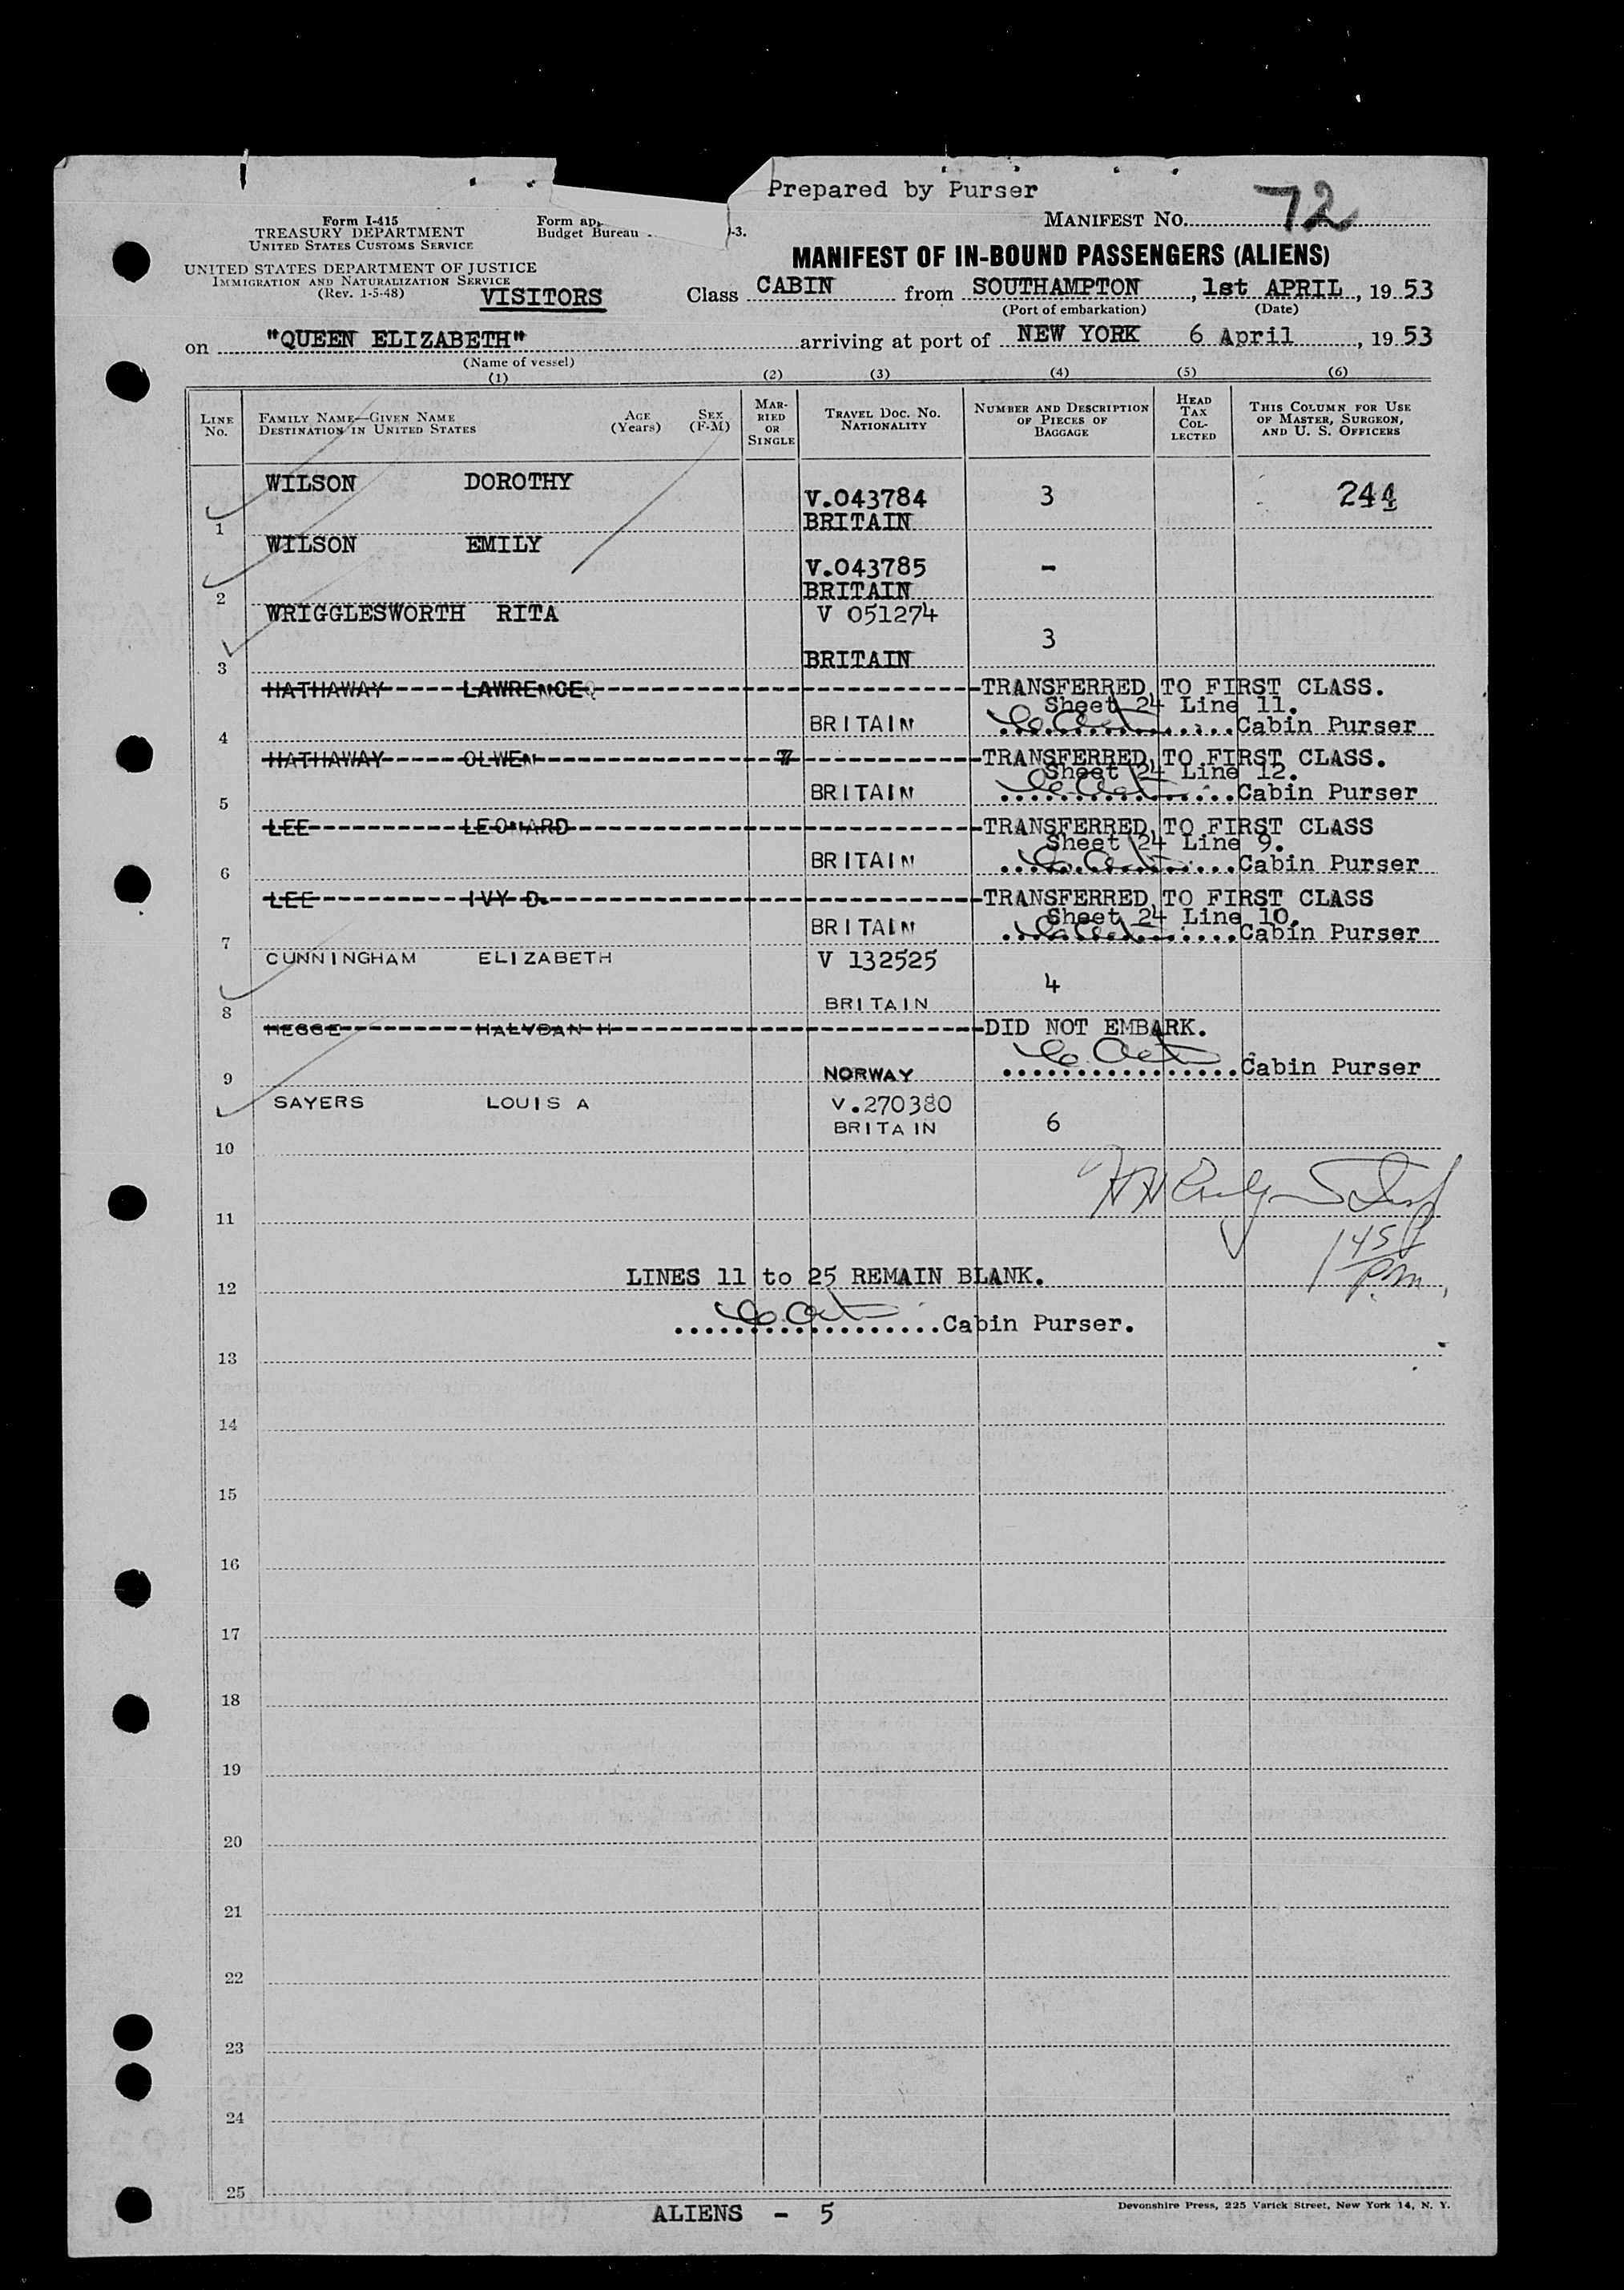 Prepared by Purser
Form I-415
TREASURY DEPARTMENT
UNITED STATES CUSTOMS SERVICE
UNITED STATES DEPARTMENT OF JUSTICE
IMMIGRATION AND NATURALIZATION SERVICE
(Rev. 1-5-48)
VISITORS
Form ap
Budget Bureau
-3.
MANIFEST NO. 72
MANIFEST OF IN-BOUND PASSENGERS (ALIENS)
Class CABIN from SOUTHAMPTON, 1st APRIL, 1953
(Port of embarkation) (Date)
on "QUEEN ELIZABETH" arriving at port of NEW YORK 6 April, 1953
(Name of vessel)
(1) (2) (3) (4) (5) (6)
LINE NO.
FAMILY NAME—GIVEN NAME
DESTINATION IN UNITED STATES
AGE (Years)
SEX (F-M)
MARRIED OR SINGLE
TRAVEL DOC. NO. NATIONALITY
NUMBER AND DESCRIPTION OF PIECES OF BAGGAGE
HEAD TAX COLLECTED
THIS COLUMN FOR USE OF MASTER, SURGEON, AND U. S. OFFICERS
WILSON DOROTHY
V.043784 3 244
1 BRITAIN
WILSON EMILY
V.043785 -
2 BRITAIN
WRIGGLESWORTH RITA V 051274
3
3 BRITAIN
HATHAWAY LAWRENCE TRANSFERRED TO FIRST CLASS.
Sheet 24 Line 11.
4 BRITAIN Cabin Purser
HATHAWAY OLWEN TRANSFERRED TO FIRST CLASS.
Sheet 24 Line 12.
5 BRITAIN Cabin Purser
LEE LEONARD TRANSFERRED TO FIRST CLASS
Sheet 24 Line 9.
6 BRITAIN Cabin Purser
LEE IVY D. TRANSFERRED TO FIRST CLASS
Sheet 24 Line 10.
7 BRITAIN Cabin Purser
CUNNINGHAM ELIZABETH V 132525
4
8 BRITAIN
HEGGE HALVDAN H DID NOT EMBARK.
9 NORWAY Cabin Purser
SAYERS LOUIS A V.270380
BRITAIN 6
10
11
145 pm
LINES 11 to 25 REMAIN BLANK.
12
Cabin Purser.
13
14
15
16
17
18
19
20
21
22
23
24
25
ALIENS - 5
Devonshire Press, 225 Varick Street, New York 14, N. Y.